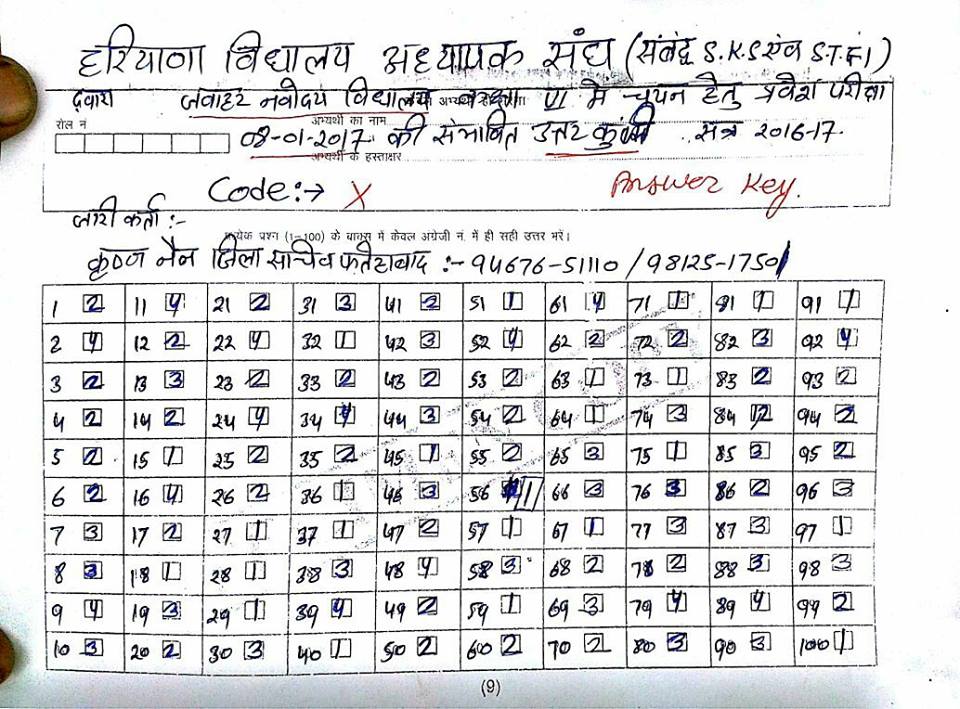 हरियाणा विद्यालय अध्यापक संघ (संबंद्व S.K.S एंव S.T.F.I)
द्वारा जवाहर नवोदय विद्यालय कक्षा VI में चयन हेतु प्रवेश परीक्षा
रोल नं अभ्यर्थी का नाम
08-01-2017 की संभावित उत्तर कुंजी सत्र 2016-17.
अभ्यर्थी के हस्ताक्षर
Code:→ X Answer Key.
जारी कर्ता :-
प्रत्येक प्रश्न (1-100) के बाक्स में केवल अंग्रेजी नं. में ही सही उत्तर भरें।
कृष्ण नैन जिला सचिव फतेहाबाद :- 94676-51110 / 98125-17501
1 2 11 4 21 2 31 3 41 2 51 1 61 4 71 1 81 1 91 1
2 4 12 2 22 4 32 1 42 3 52 4 62 2 72 2 82 3 92 4
3 2 13 3 23 2 33 2 43 2 53 2 63 1 73 1 83 2 93 2
4 2 14 2 24 4 34 4 44 3 54 2 64 1 74 3 84 2 94 2
5 2 15 1 25 2 35 2 45 1 55 2 65 3 75 1 85 3 95 2
6 2 16 4 26 2 36 1 46 3 56 1 66 3 76 3 86 2 96 3
7 3 17 2 27 1 37 1 47 2 57 1 67 1 77 3 87 3 97 1
8 3 18 1 28 1 38 3 48 4 58 3 68 2 78 2 88 3 98 3
9 4 19 3 29 1 39 4 49 2 59 1 69 3 79 4 89 4 99 2
10 3 20 2 30 3 40 1 50 2 60 2 70 2 80 3 90 3 100 1
(9)